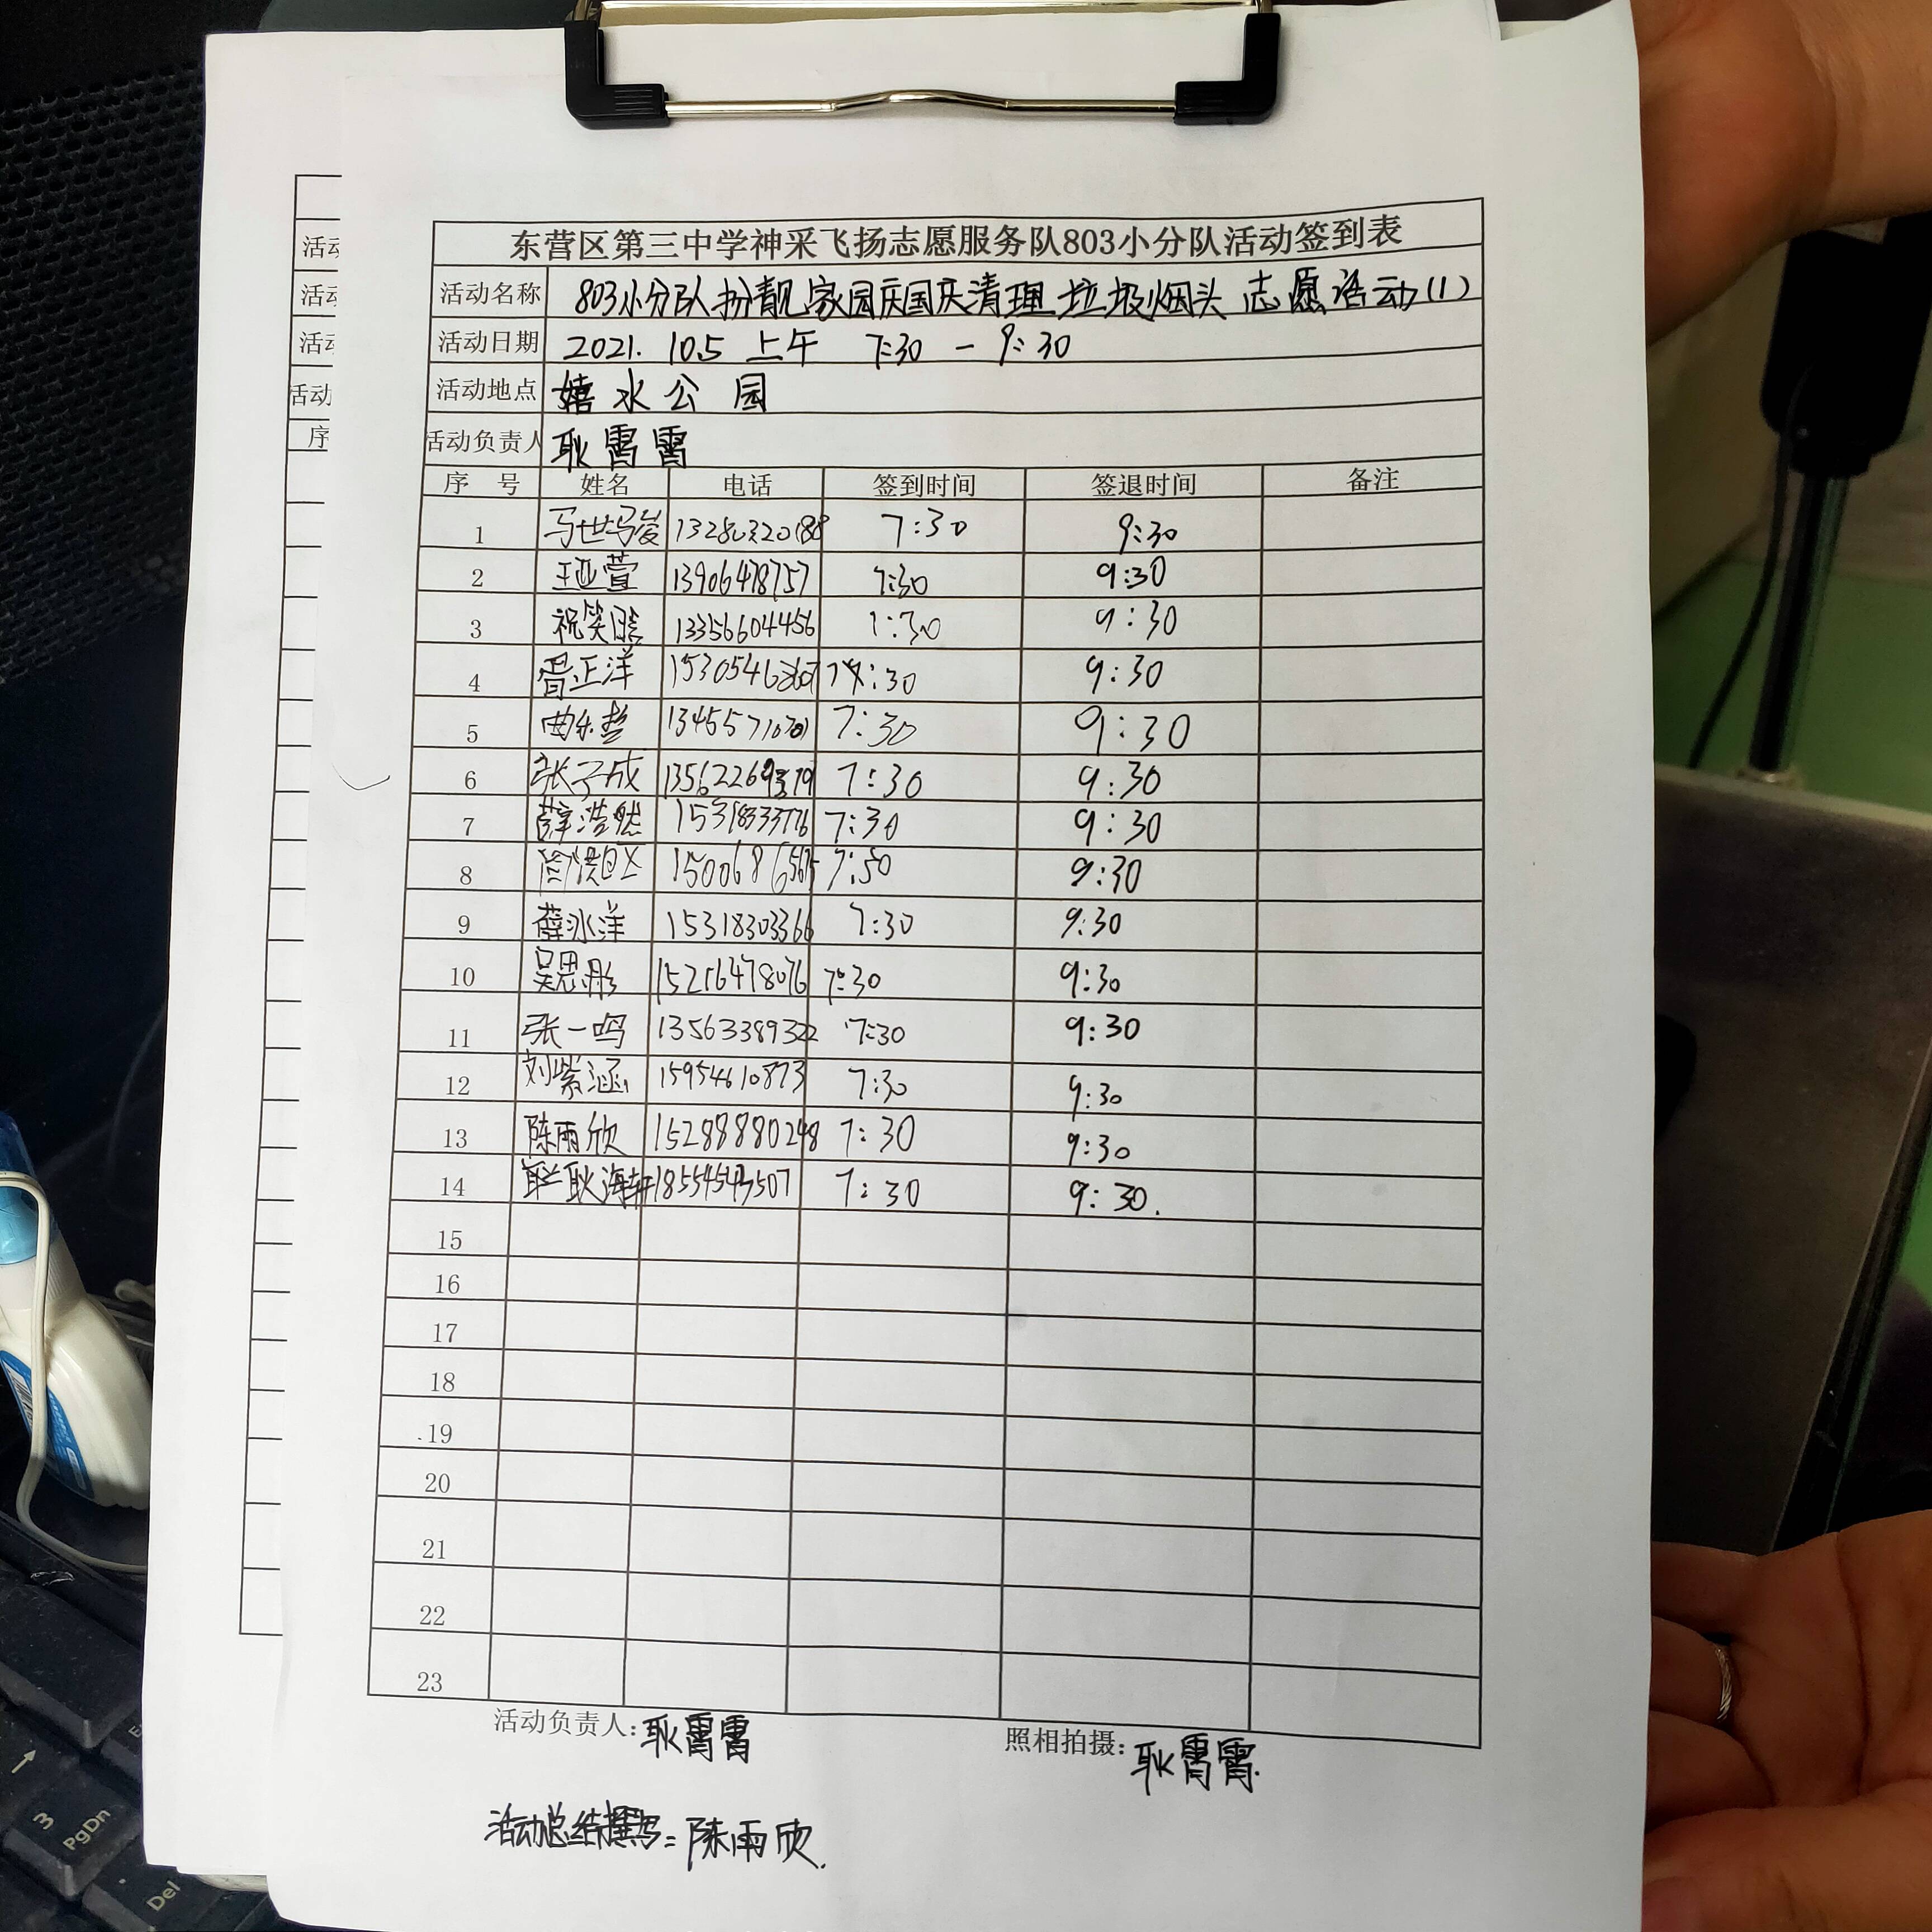 东营区第三中学神采飞扬志愿服务队803小分队活动签到表
活动名称 803小分队扮靓家园庆国庆清理垃圾烟头志愿活动(1)
活动日期 2021. 10.5 上午 7:30 - 9:30
活动地点 嬉水公园
活动负责人 耿霄霄
序号 姓名 电话 签到时间 签退时间 备注
1 7:30 9:30
2 王亚萱 13906478757 7:30 9:30
3 13356604456 7:30 9:30
4 :30 9:30
5 7:30 9:30
6 张子成 7:30 9:30
7 薛浩然 7:30 9:30
8 9:30
9 薛冰洋 15318303366 7:30 9:30
10 吴思彤 7:30 9:30
11 张一鸣 13563389322 7:30 9:30
12 刘紫涵 15954610873 7:30 9:30
13 陈雨欣 15288880248 7:30 9:30
14 耿海轩 7:30 9:30.
15
16
17
18
19
20
21
22
23
活动负责人:耿霄霄 照相拍摄:耿霄霄.
活动总结撰写:陈雨欣.
活动
活动
活动
活动
序
3
PgDn
Del